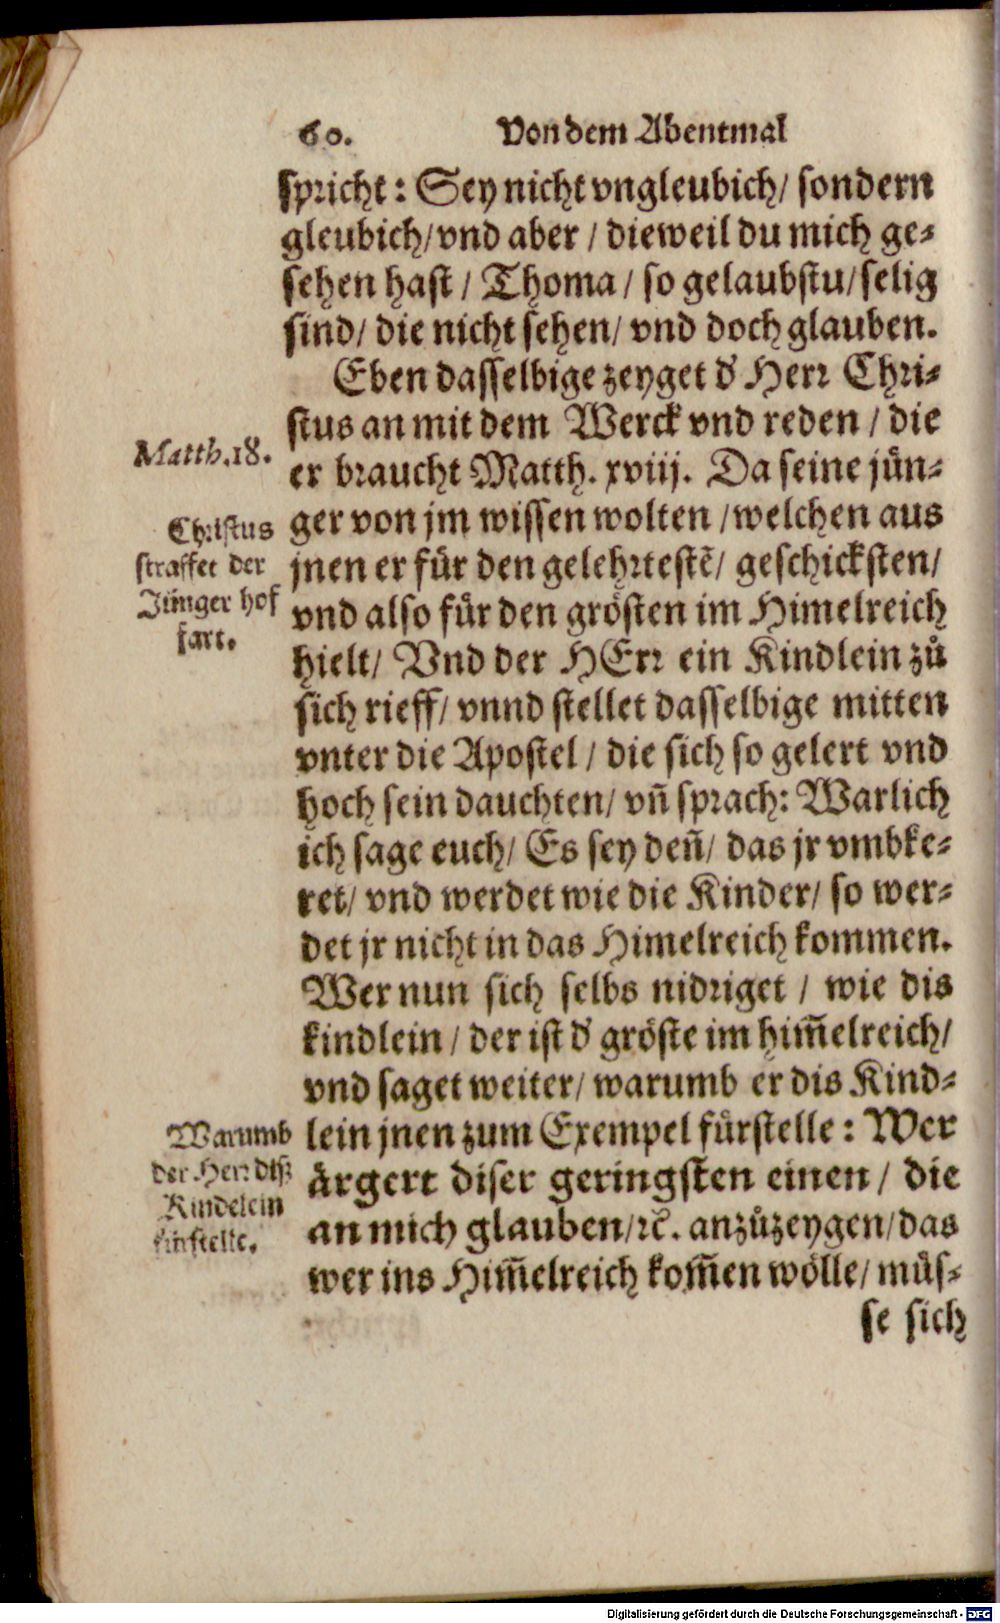 60. Von dem Abentmal
spricht: Sey nicht vngleubich/ sondern
gleubich/vnd aber / dieweil du mich ge⸗
sehen hast / Thoma / so gelaubstu/selig
sind/ die nicht sehen/ vnd doch glauben.
Eben dasselbige zeyget d' Herr Chri⸗
stus an mit dem Werck vnd reden / die
Matth.18.
er braucht Matth. xviij. Da seine jün⸗
ger von jm wissen wolten /welchen aus
jnen er für den gelehrtestē/ geschicksten/
vnd also für den grösten im Himelreich
Christus
straffet der
Jünger hof
fart.
hielt/ Vnd der HErr ein Kindlein zů
sich rieff/ vnnd stellet dasselbige mitten
vnter die Apostel / die sich so gelert vnd
hoch sein dauchten/ vn̄ sprach: Warlich
ich sage euch/ Es sey den̄/ das jr vmbke⸗
ret/ vnd werdet wie die Kinder/ so wer⸗
det jr nicht in das Himelreich kommen.
Wer nun sich selbs nidriget / wie dis
kindlein / der ist d' gröste im him̄elreich/
vnd saget weiter/ warumb er dis Kind⸗
lein jnen zum Exempel fürstelle: Wer
ärgert diser geringsten einen / die
an mich glauben/ꝛc̄. anzůzeygen/das
wer ins Him̄elreich kom̄en wölle/ müs⸗
Warumb
der Herr diß
Kindelein
fürstelle.
se sich
Digitalisierung gefördert durch die Deutsche Forschungsgemeinschaft - DFG